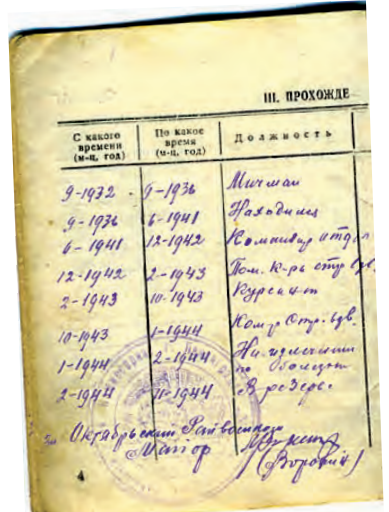 III. ПРОХОЖДЕ
С какого времени (м-ц, год) По какое время (м-ц, год) Должность
9-1932 - 9-1936 Мичман
9-1936 6-1941
6-1941 12-1942 Командир
12-1942 2-1943 Пом. к-ра стр.
2-1943 10-1943 Курсант
10-1943 1-1944 Ком-р стр. вдв.
1-1944 2-1944 На излечении по болезни
2-1944 11-1944 В резерве
Октябрьский Райвоенком
Майор
4